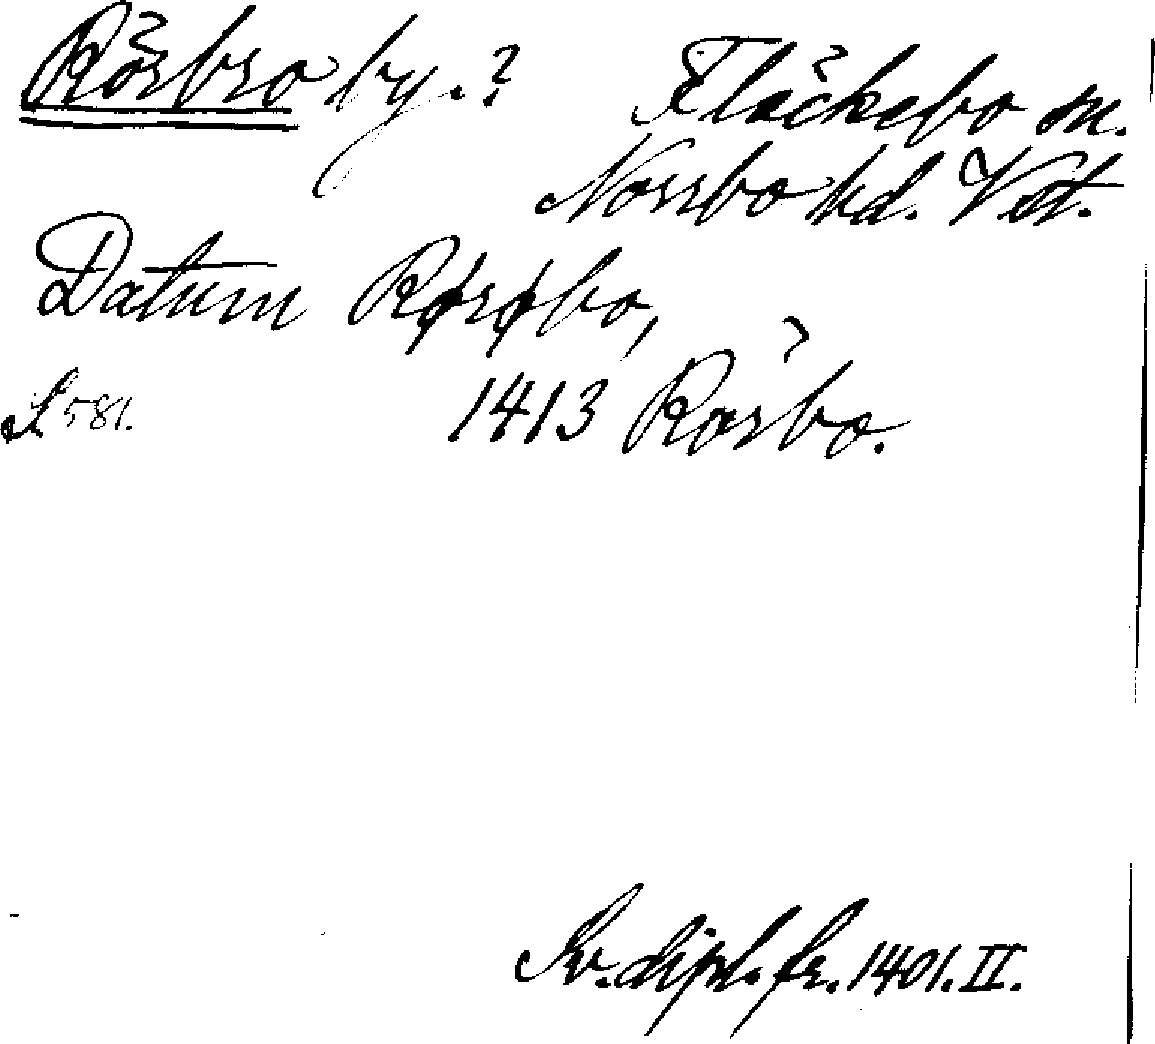 Rörbro by.? Fläckebo sn.
Norrbo hd. Vstm.
Datum Rørøbo,
S. 581. 1413 Rörbo.
Sv. dipl. fr. 1401. II.